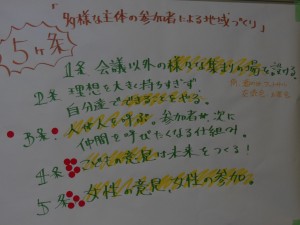 「多様な主体の参加者による地域づくり」
5ヶ条
1条 会議以外の様々な集まりの場を設ける
2条 理想を大きく持ちすぎず、
自分達でできることをやる。
3条 人が人を呼ぶ。参加者が、次に
仲間を呼びたくなる仕組み。
4条 こどもの意見は未来をつくる!
5条 女性の意見、女性の参加。